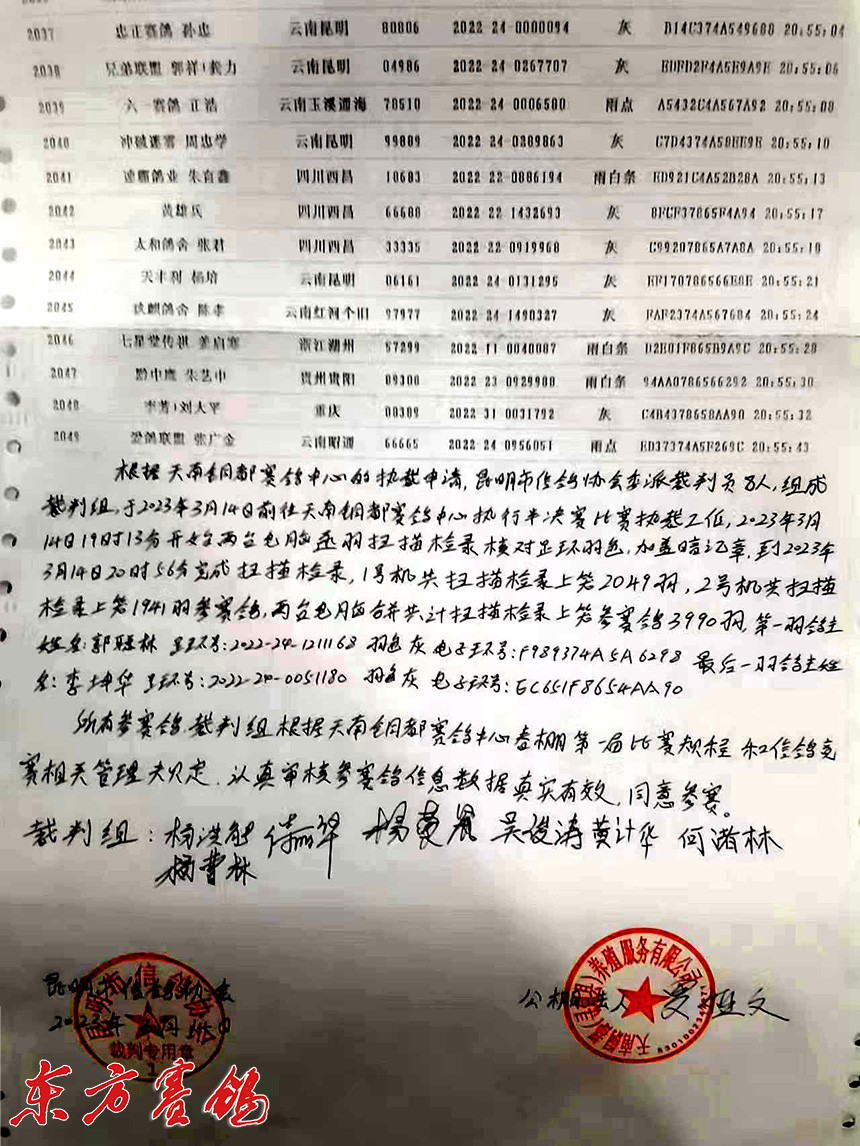 2037 忠正赛鸽 孙忠 云南昆明 80806 2022 24 0000094 灰 D14C374A549688 20:55:04
2038 兄弟联盟 郭祥+龚力 云南昆明 04986 2022 24 0267707 灰 20:55:06
2039 六一赛鸽 正浩 云南玉溪通海 70510 2022 24 0006580 雨点 A5432C4A567A92 20:55:08
2040 周忠学 云南昆明 99809 2022 24 0209863 灰 C7D4374A50EE9E 20:55:10
2041 朱自鑫 四川西昌 10603 2022 22 0886194 雨白条 ED921C4A52B28A 20:55:13
2042 黄雄兵 四川西昌 66600 2022 22 1432693 灰 8FCF37865F4A94 20:55:17
2043 太和鸽舍 张君 四川西昌 33335 2022 22 0919960 灰 C99207865A7A8A 20:55:18
2044 天丰利 杨培 云南昆明 06161 2022 24 0131295 灰 EF170786566E0E 20:55:21
2045 玖麒鸽舍 陈孝 云南红河个旧 97977 2022 24 1490327 灰 FAF2374A567684 20:55:24
2046 七星堂传祺 姜启寒 浙江湖州 57299 2022 11 0040007 雨白条 D2E01F865B9A9C 20:55:28
2047 黔中鹰 朱艺中 贵州贵阳 09300 2022 23 0929900 雨白条 94AA0786566292 20:55:30
2048 李芳+刘大平 重庆 00309 2022 31 0031792 灰 C4B4378658AA90 20:55:32
2049 爱鸽联盟 张广金 云南昭通 66665 2022 24 0956051 雨点 ED37374A5F269C 20:55:43
根据天南铜都赛鸽中心的执裁申请,昆明市信鸽协会委派裁判员8人,组成
裁判组,于2023年3月14日前往天南铜都赛鸽中心执行半决赛比赛执裁工作,2023年3月
14日19时13分开始两台电脑逐羽扫描检录核对足环羽色,加盖暗记章,到2023年
3月14日20时56分完成扫描检录,1号机共扫描检录上笼2049羽,2号机共扫描
检录上笼1941羽参赛鸽,两台电脑合并共计扫描检录上笼参赛鸽3990羽,第一羽鸽主
姓名:郭聪林 足环号:2022-24-1211168 羽色灰 电子环号:F989374A5A6298 最后一羽鸽主姓
名:李坤华 足环号:2022-24-0051180 羽色灰 电子环号:EC651F8654AA90
所有参赛鸽,裁判组根据天南铜都赛鸽中心春棚第一届比赛规程和信鸽竞
赛相关管理规定,认真审核参赛鸽信息数据真实有效,同意参赛。
裁判组: 杨洪能 吴俊涛 黄计华 何潜林
杨曹林
昆明市信鸽协会
2023年三月14日
裁判专用章
1
公棚法人
养殖服务有限公司
东方赛鸽